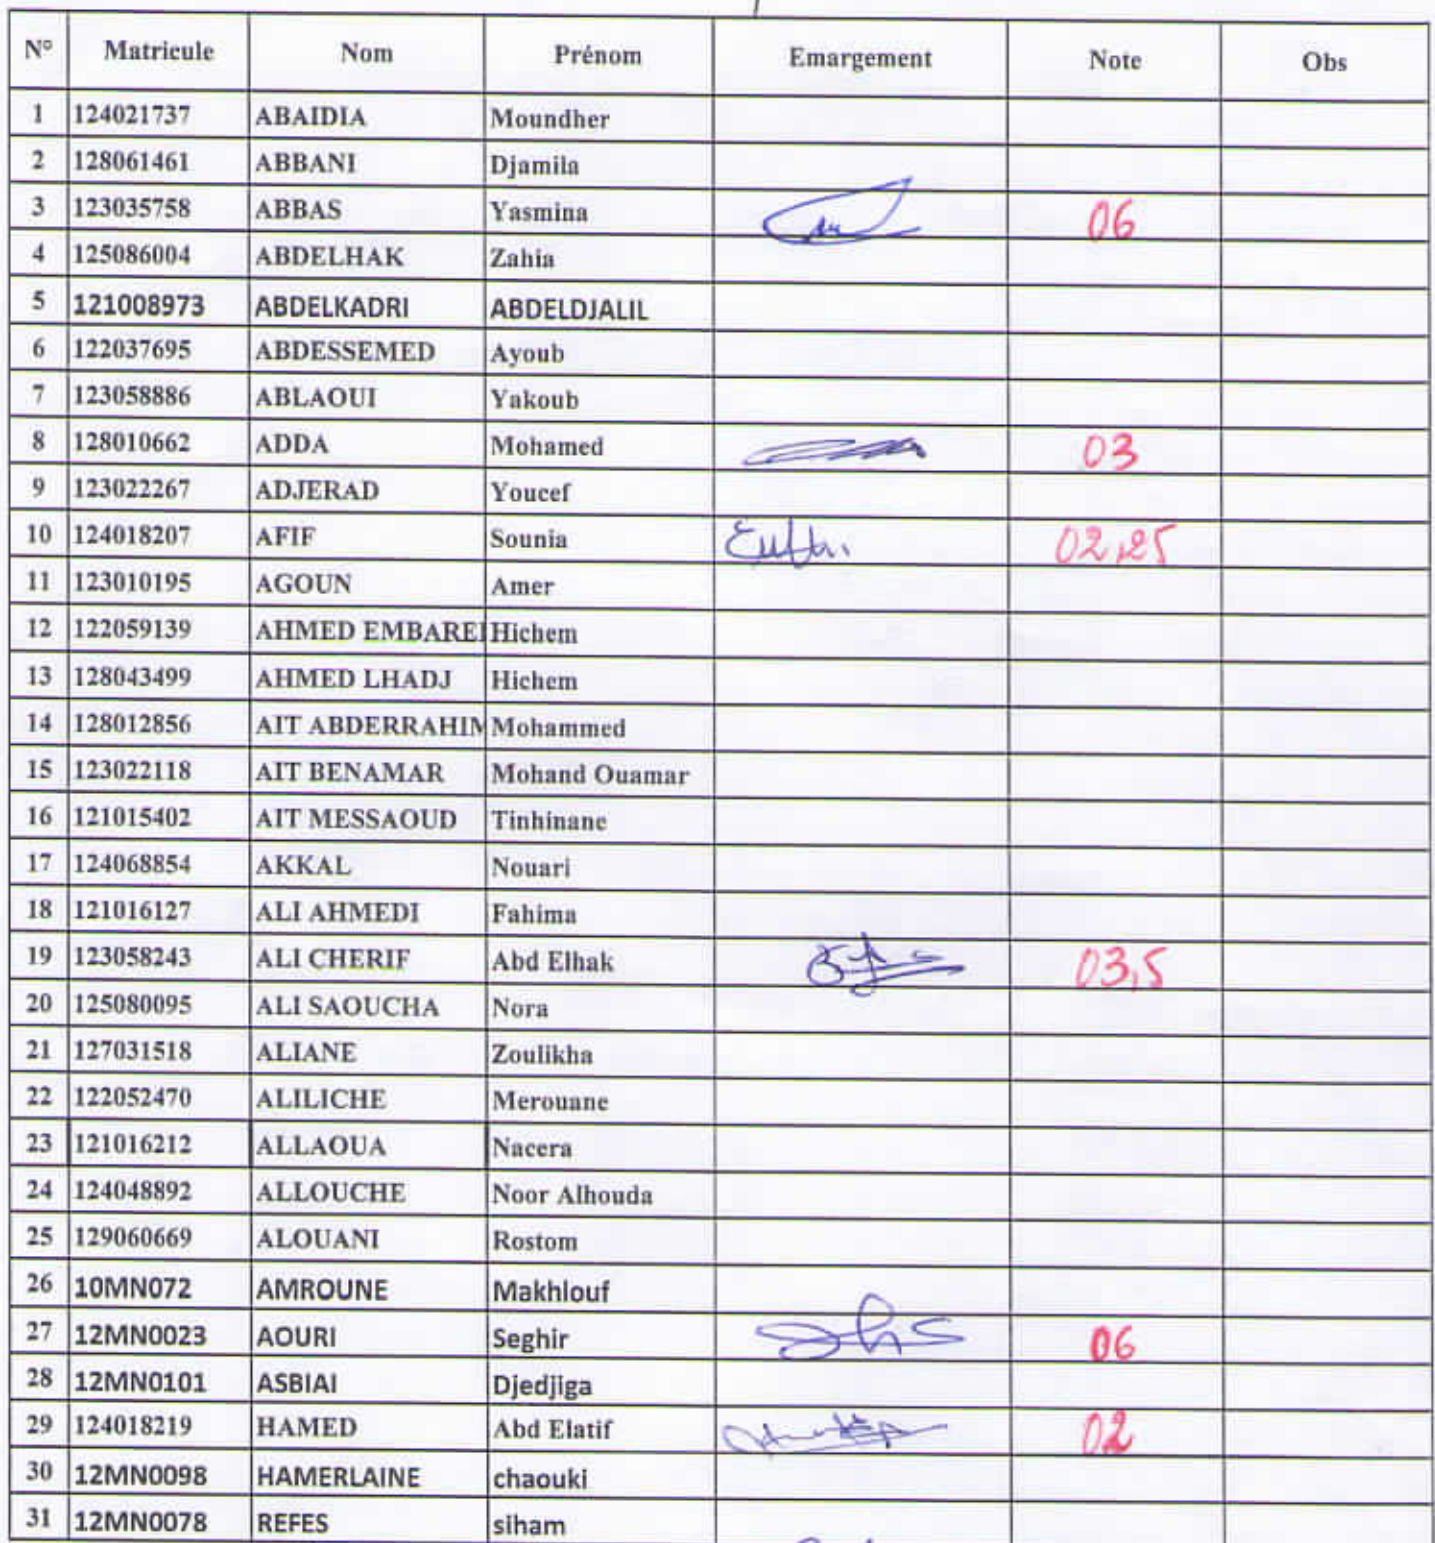 N° Matricule Nom Prénom Emargement Note Obs
1 124021737 ABAIDIA Moundher
2 128061461 ABBANI Djamila
3 123035758 ABBAS Yasmina 06
4 125086004 ABDELHAK Zahia
5 121008973 ABDELKADRI ABDELDJALIL
6 122037695 ABDESSEMED Ayoub
7 123058886 ABLAOUI Yakoub
8 128010662 ADDA Mohamed 03
9 123022267 ADJERAD Youcef
10 124018207 AFIF Sounia 02,25
11 123010195 AGOUN Amer
12 122059139 AHMED EMBARE Hichem
13 128043499 AHMED LHADJ Hichem
14 128012856 AIT ABDERRAHIM Mohammed
15 123022118 AIT BENAMAR Mohand Ouamar
16 121015402 AIT MESSAOUD Tinhinane
17 124068854 AKKAL Nouari
18 121016127 ALI AHMEDI Fahima
19 123058243 ALI CHERIF Abd Elhak 03,5
20 125080095 ALI SAOUCHA Nora
21 127031518 ALIANE Zoulikha
22 122052470 ALILICHE Merouane
23 121016212 ALLAOUA Nacera
24 124048892 ALLOUCHE Noor Alhouda
25 129060669 ALOUANI Rostom
26 10MN072 AMROUNE Makhlouf
27 12MN0023 AOURI Seghir 06
28 12MN0101 ASBIAI Djedjiga
29 124018219 HAMED Abd Elatif 02
30 12MN0098 HAMERLAINE chaouki
31 12MN0078 REFES siham